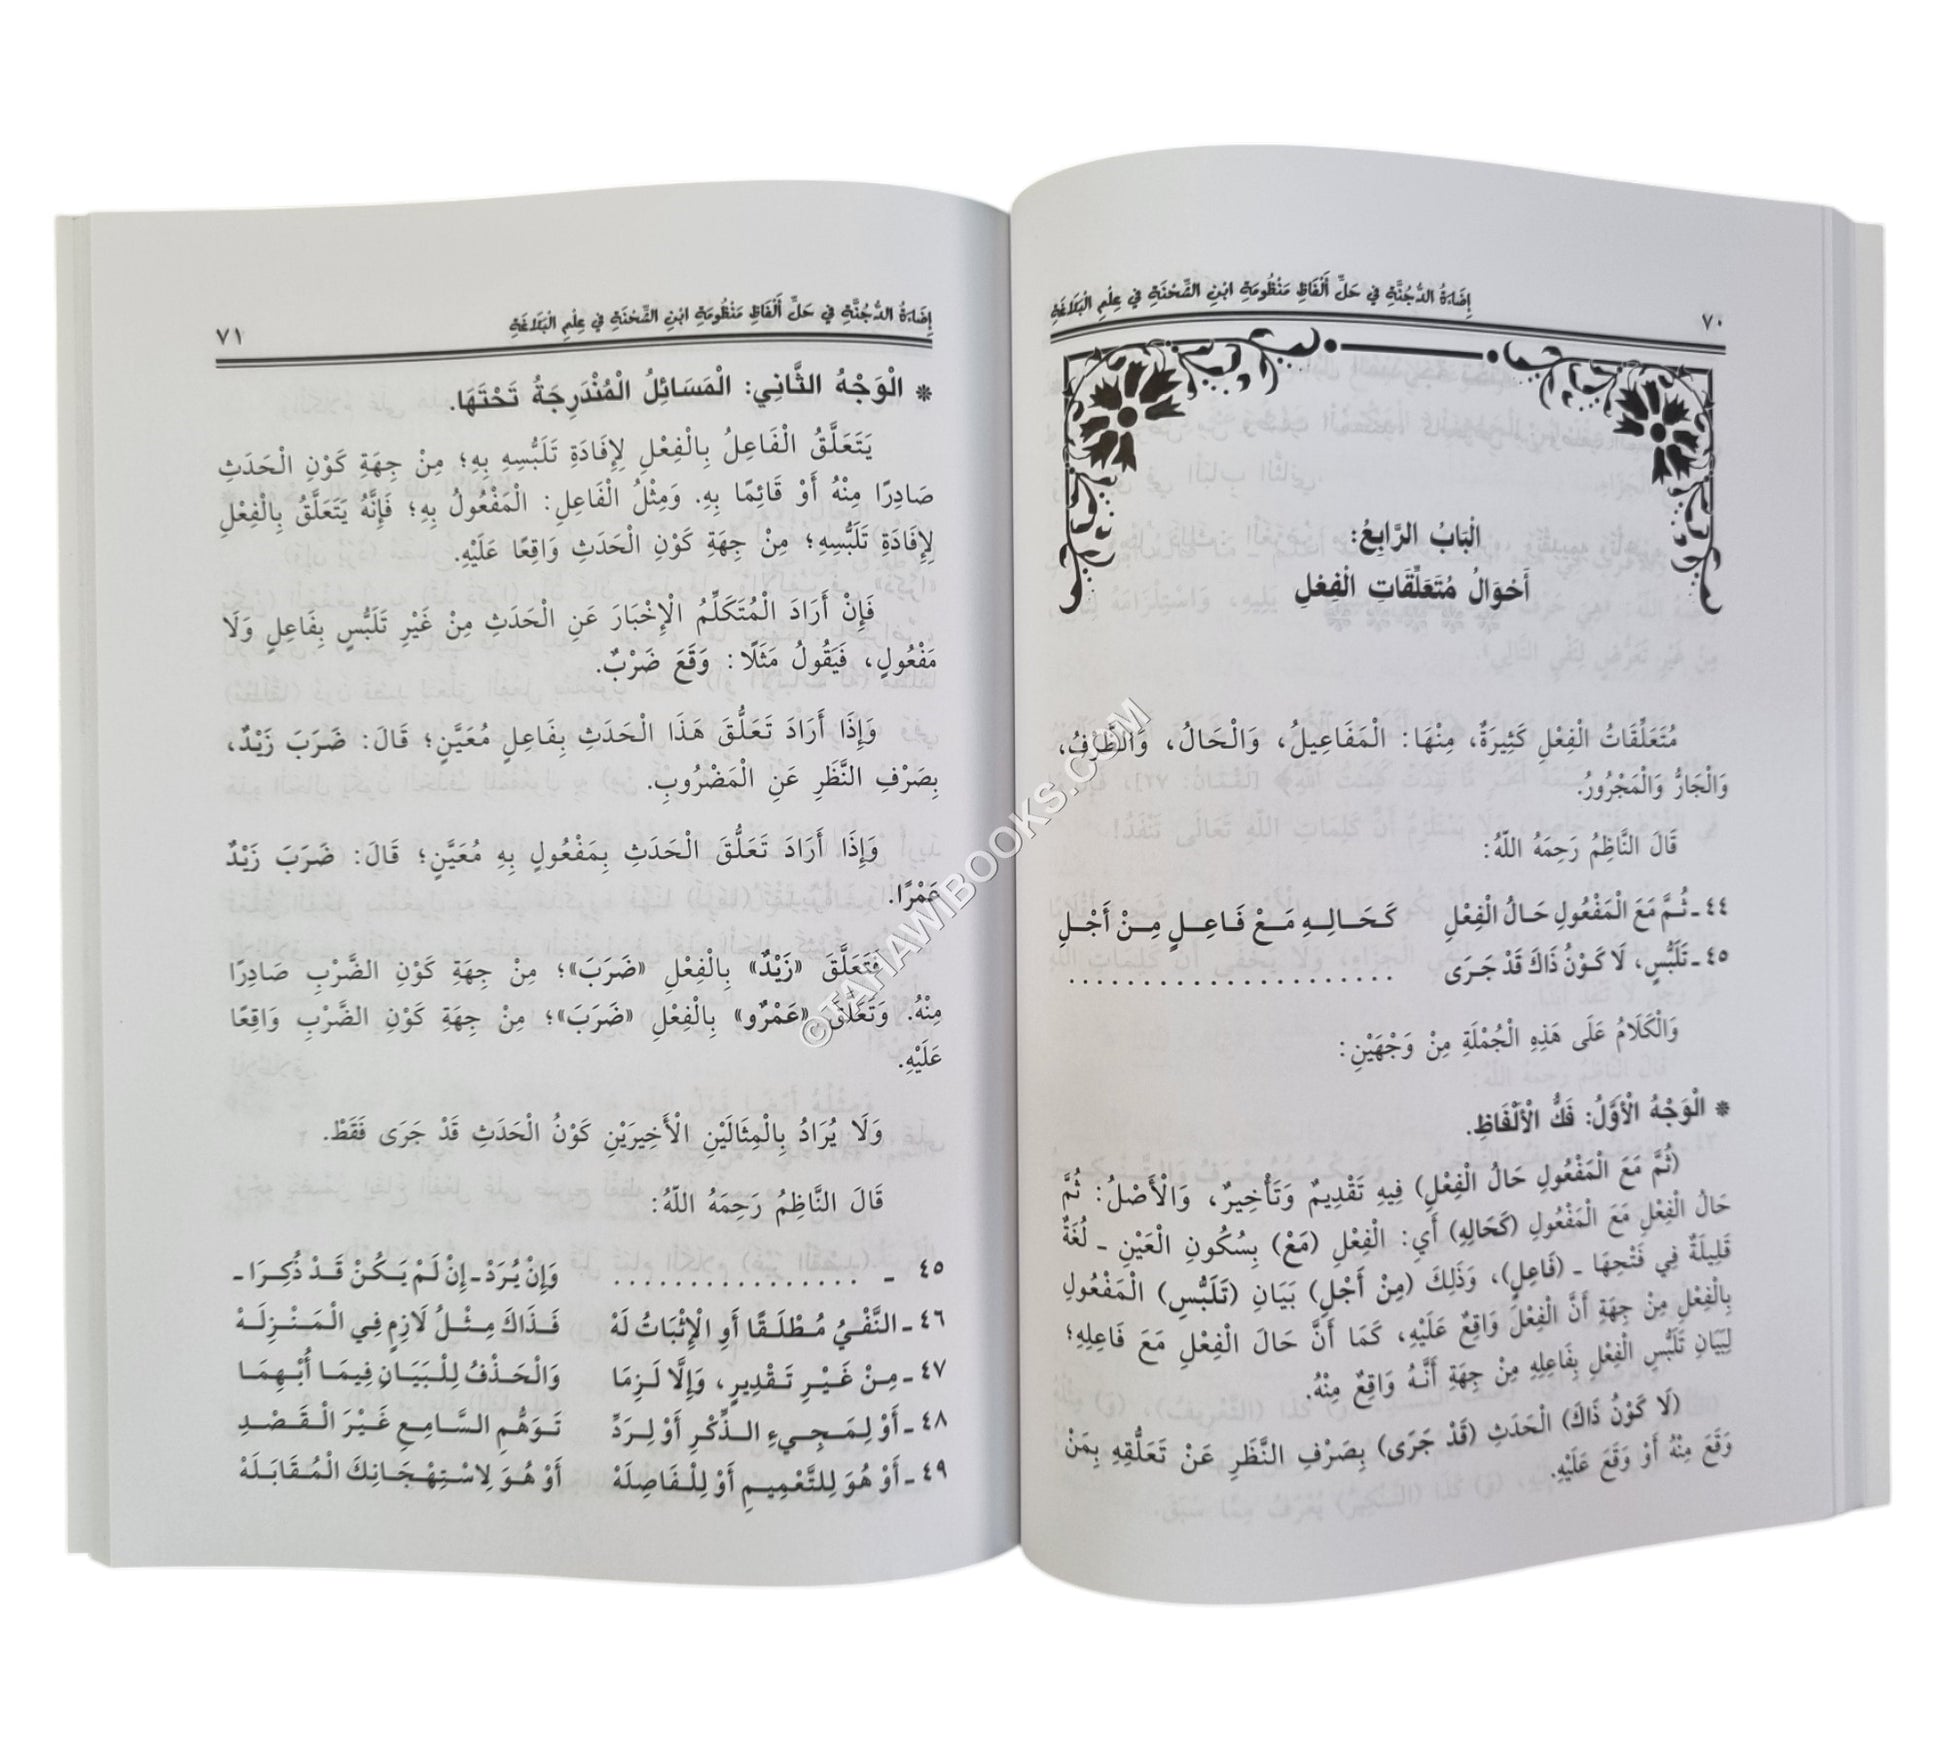 إِضَاءَةُ الدُّجُنَّةِ فِي حَلِّ أَلْفَاظِ مَنْظُومَةِ ابْنِ الشِّحْنَةِ فِي عِلْمِ الْبَلَاغَةِ ٧٠
الْبَابُ الرَّابِعُ:
أَحْوَالُ مُتَعَلِّقَاتِ الْفِعْلِ
مُتَعَلِّقَاتُ الْفِعْلِ كَثِيرَةٌ، مِنْهَا: الْمَفَاعِيلُ، وَالْحَالُ، وَالظَّرْفُ،
وَالْجَارُّ وَالْمَجْرُورُ.
قَالَ النَّاظِمُ رَحِمَهُ اللّٰهُ:
٤٤ - ثُمَّ مَعَ الْمَفْعُولِ حَالُ الْفِعْلِ كَحَالِهِ مَعْ فَاعِلٍ مِنْ أَجْلِ
٤٥ - تَلَبُّسٍ، لَا كَوْنُ ذَاكَ قَدْ جَرَى .......................
وَالْكَلَامُ عَلَى هَذِهِ الْجُمْلَةِ مِنْ وَجْهَيْنِ:
* الْوَجْهُ الْأَوَّلُ: فَكُّ الْأَلْفَاظِ.
(ثُمَّ مَعَ الْمَفْعُولِ حَالُ الْفِعْلِ) فِيهِ تَقْدِيمٌ وَتَأْخِيرٌ، وَالْأَصْلُ: ثُمَّ
حَالُ الْفِعْلِ مَعَ الْمَفْعُولِ (كَحَالِهِ) أَيْ: الْفِعْلِ (مَعْ) بِسُكُونِ الْعَيْنِ - لُغَةٌ
قَلِيلَةٌ فِي فَتْحِهَا - (فَاعِلٍ)، وَذَلِكَ (مِنْ أَجْلِ) بَيَانِ (تَلَبُّسِ) الْمَفْعُولِ
بِالْفِعْلِ مِنْ جِهَةِ أَنَّ الْفِعْلَ وَاقِعٌ عَلَيْهِ، كَمَا أَنَّ حَالَ الْفِعْلِ مَعَ فَاعِلِهِ؛
لِبَيَانِ تَلَبُّسِ الْفِعْلِ بِفَاعِلِهِ مِنْ جِهَةِ أَنَّهُ وَاقِعٌ مِنْهُ.
(لَا كَوْنُ ذَاكَ) الْحَدَثِ (قَدْ جَرَى) بِصَرْفِ النَّظَرِ عَنْ تَعَلُّقِهِ بِمَنْ
وَقَعَ مِنْهُ أَوْ وَقَعَ عَلَيْهِ.
إِضَاءَةُ الدُّجُنَّةِ فِي حَلِّ أَلْفَاظِ مَنْظُومَةِ ابْنِ الشِّحْنَةِ فِي عِلْمِ الْبَلَاغَةِ ٧١
* الْوَجْهُ الثَّانِي: الْمَسَائِلُ الْمُنْدَرِجَةُ تَحْتَهَا.
يَتَعَلَّقُ الْفَاعِلُ بِالْفِعْلِ لِإِفَادَةِ تَلَبُّسِهِ بِهِ؛ مِنْ جِهَةِ كَوْنِ الْحَدَثِ
صَادِرًا مِنْهُ أَوْ قَائِمًا بِهِ. وَمِثْلُ الْفَاعِلِ: الْمَفْعُولُ بِهِ؛ فَإِنَّهُ يَتَعَلَّقُ بِالْفِعْلِ
لِإِفَادَةِ تَلَبُّسِهِ؛ مِنْ جِهَةِ كَوْنِ الْحَدَثِ وَاقِعًا عَلَيْهِ.
فَإِنْ أَرَادَ الْمُتَكَلِّمُ الْإِخْبَارَ عَنِ الْحَدَثِ مِنْ غَيْرِ تَلَبُّسٍ بِفَاعِلٍ وَلَا
مَفْعُولٍ، فَيَقُولُ مَثَلًا: وَقَعَ ضَرْبٌ.
وَإِذَا أَرَادَ تَعَلُّقَ هَذَا الْحَدَثِ بِفَاعِلٍ مُعَيَّنٍ؛ قَالَ: ضَرَبَ زَيْدٌ،
بِصَرْفِ النَّظَرِ عَنِ الْمَضْرُوبِ.
وَإِذَا أَرَادَ تَعَلُّقَ الْحَدَثِ بِمَفْعُولٍ بِهِ مُعَيَّنٍ؛ قَالَ: ضَرَبَ زَيْدٌ
عَمْرًا.
فَتَعَلَّقَ «زَيْدٌ» بِالْفِعْلِ «ضَرَبَ»؛ مِنْ جِهَةِ كَوْنِ الضَّرْبِ صَادِرًا
مِنْهُ. وَتَعَلَّقَ «عَمْرٌو» بِالْفِعْلِ «ضَرَبَ»؛ مِنْ جِهَةِ كَوْنِ الضَّرْبِ وَاقِعًا
عَلَيْهِ.
وَلَا يُرَادُ بِالْمِثَالَيْنِ الْأَخِيرَيْنِ كَوْنُ الْحَدَثِ قَدْ جَرَى فَقَطْ.
قَالَ النَّاظِمُ رَحِمَهُ اللّٰهُ:
٤٥ - ................. وَإِنْ يُرَدْ - إِنْ لَمْ يَكُنْ قَدْ ذُكِرَا -
٤٦ - النَّفْيُ مُطْلَقًا أَوِ الْإِثْبَاتُ لَهْ فَذَاكَ مِثْلُ لَازِمٍ فِي الْمَنْزِلَهْ
٤٧ - مِنْ غَيْرِ تَقْدِيرٍ، وَإِلَّا لَزِمَا وَالْحَذْفُ لِلْبَيَانِ فِيمَا أُبْهِمَا
٤٨ - أَوْ لِمَجِيءِ الذِّكْرِ أَوْ لِرَدِّ تَوَهُّمِ السَّامِعِ غَيْرَ الْقَصْدِ
٤٩ - أَوْ هُوَ لِلتَّعْمِيمِ أَوْ لِلْفَاصِلَهْ أَوْ هُوَ لِاسْتِهْجَانِكَ الْمُقَابَلَهْ
©TAHAWIBOOKS.COM